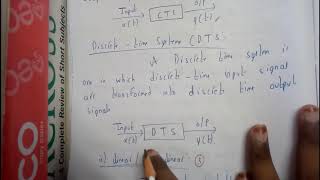 Input → CTS → o/p
x(t) y(t)
Discrete-time System (DTS)
A Discrete time system
are in which discrete-time input signal
are transformed into discrete time output
signals
Input → DTS → o/p
x(t) y(t)
a) linear
A Complete Review of Short Subjects